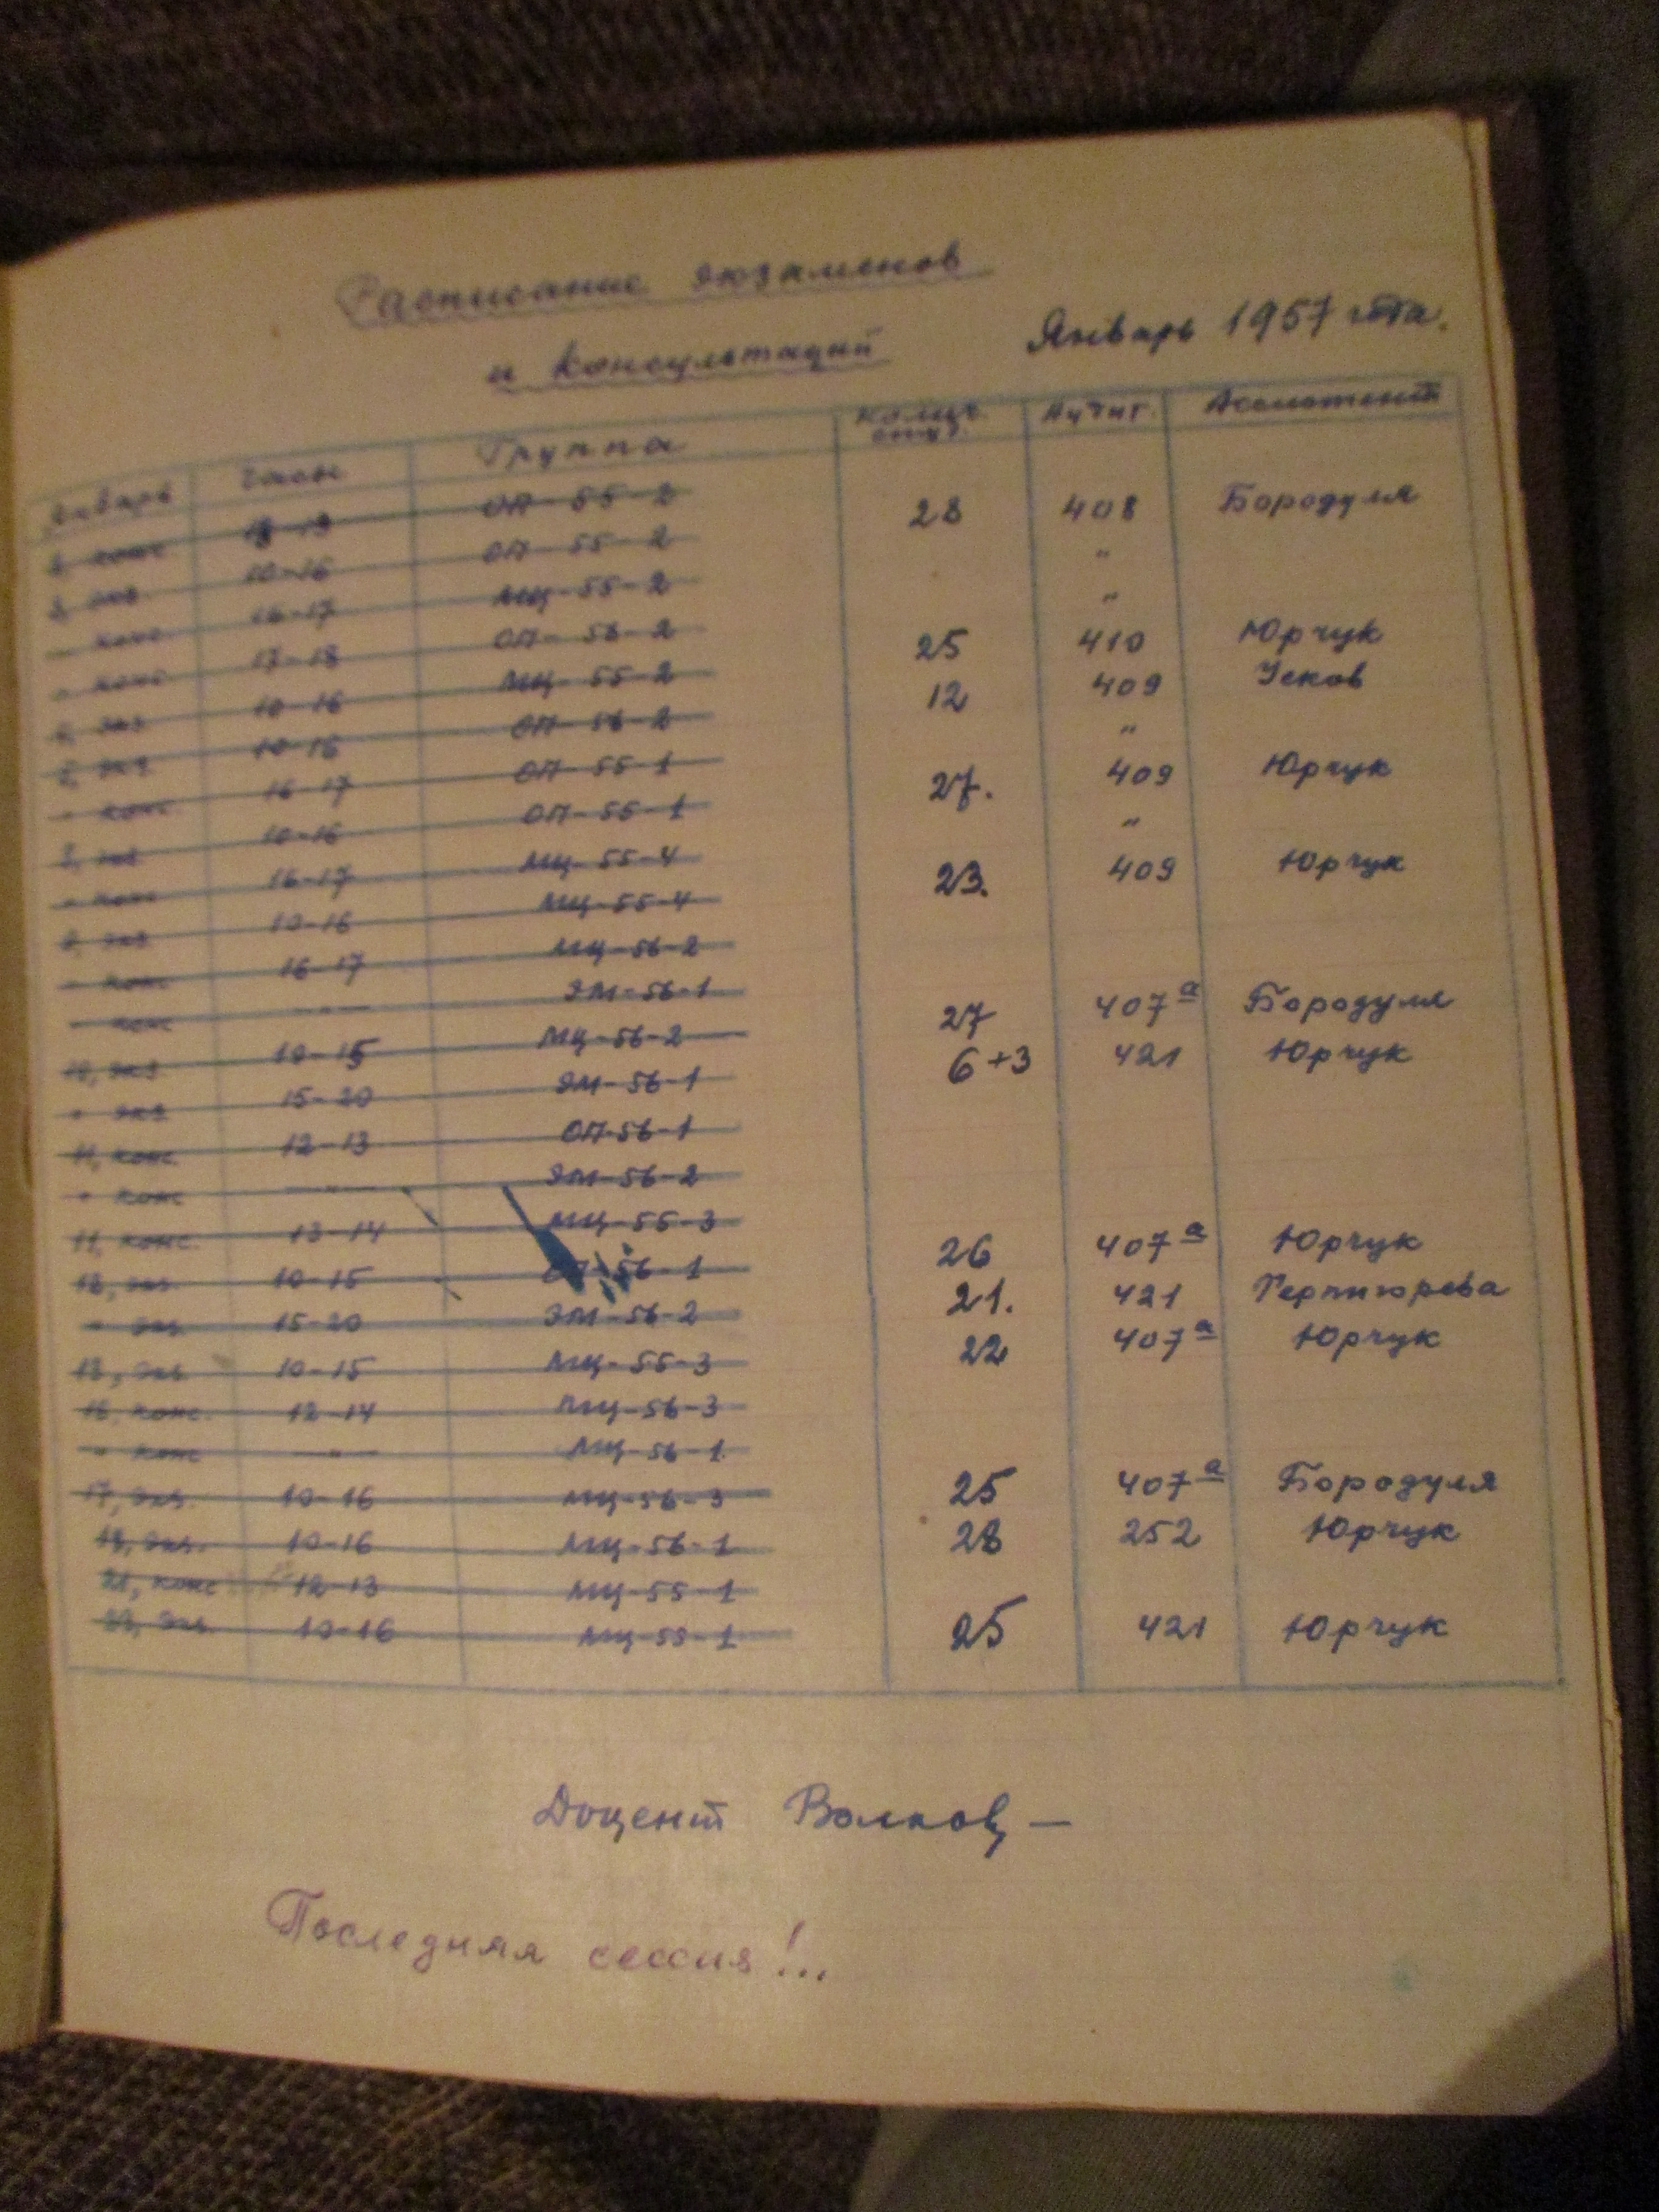 Расписание экзаменов
и консультаций Январь 1957 года.
Январь Часы Группа Колич. студ. Аудит. Ассистент
2, конс 18-19 ОП-55-2
3, экз 10-16 ОП-55-2 28 408 Бородуля
" конс 16-17 МЦ-55-2 "
" конс 17-18 ОП-56-2 "
4, экз 10-16 МЦ-55-2 25 410 Юрчук
5, экз 10-16 ОП-56-2 12 409 Усков
" конс 16-17 ОП-55-1 "
8, экз 10-16 ОП-55-1 27. 409 Юрчук
" конс 16-17 МЦ-55-4 "
9, экз 10-16 МЦ-55-4 23. 409 Юрчук
" конс 16-17 МЦ-56-2
" конс -"- ЭМ-56-1
10, экз 10-15 МЦ-56-2 27 407а Бородуля
" экз 15-20 ЭМ-56-1 6+3 421 Юрчук
11, конс 12-13 ОП-56-1
" конс -"- ЭМ-56-2
11, конс. 13-14 МЦ-55-3
12, экз. 10-15 ОП-56-1 26 407а Юрчук
" экз. 15-20 ЭМ-56-2 21. 421 Терпигорева
13, экз. 10-15 МЦ-55-3 22 407а Юрчук
16, конс. 12-14 МЦ-56-3
" конс -"- МЦ-56-1
17, экз. 10-16 МЦ-56-3 25 407а Бородуля
18, экз. 10-16 МЦ-56-1 28 252 Юрчук
21, конс 12-13 МЦ-55-1
экз. 10-16 МЦ-55-1 25 421 Юрчук
Доцент Волков —
Последняя сессия!...